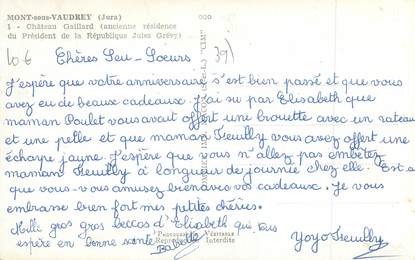 MONT-sous-VAUDREY (Jura)
1 - Château Gaillard (ancienne résidence
du Président de la République Jules Grévy)
Chères Seu-Soeurs
J'espère que votre anniversaire s'est bien passé et que vous
avez eu de beaux cadeaux. J'ai su par Elisabeth que
maman Poulet vous avait offert une brouette avec un rateau
et une pelle et que maman Feuilly vous avez offert une
écharpe jaune. J'espère que vous n'allez pas embêtez
maman Feuilly à longueur de journée chez elle. Est-ce
que vous-vous amusez bien avec vos cadeaux. Je vous
embrasse bien fort mes petites chéries.
Mille gros gros beccos d'Elisabeth qui vous
espère en bonne santé
Babette
Yoyo Feuilly
"Photographie Véritable"
Reproduction Interdite
"CIM"